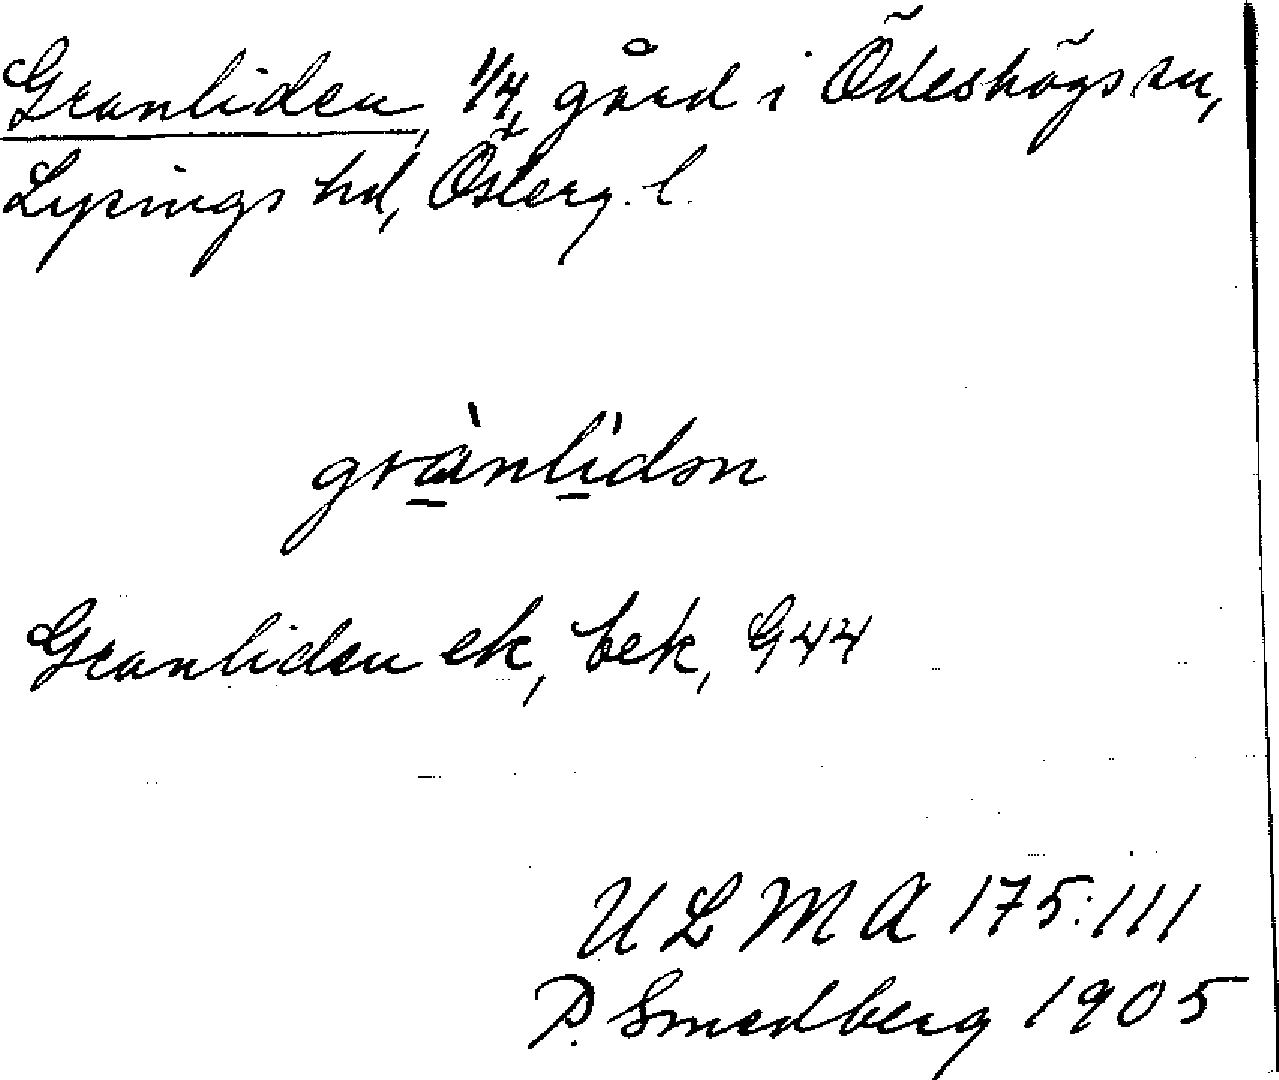 Granliden, 1/4, gård i Ödeshögs sn,
Lysings hd, Österg. l.
grànlìdən
Granliden ek, bek, G44
ULMA 175:111
P. Smedberg 1905